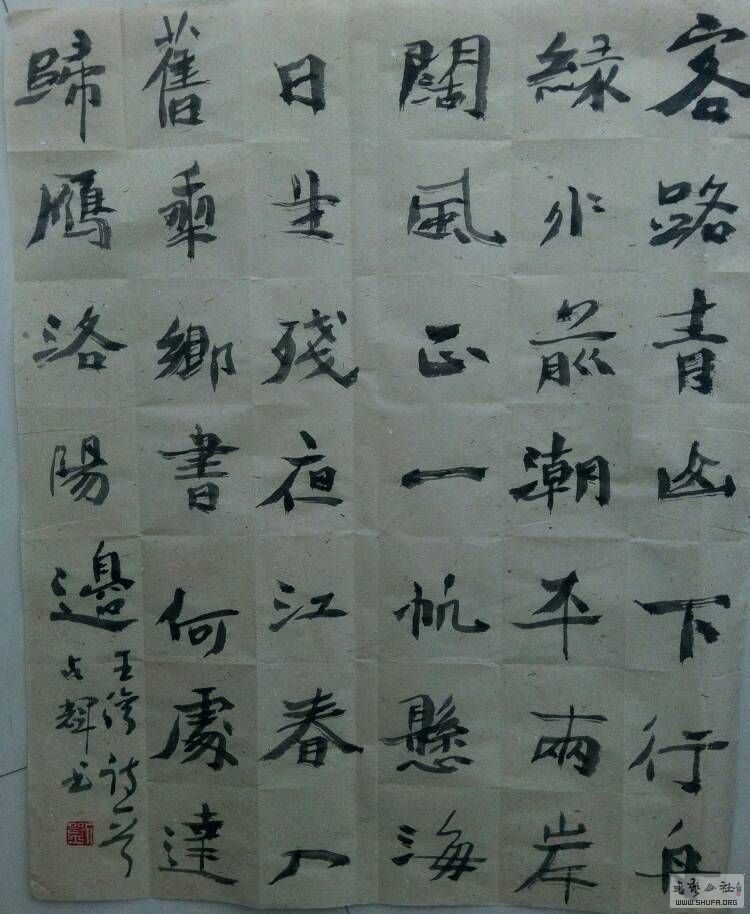 客路青山下行舟
緑水前潮平兩岸
闊風正一帆懸海
日生殘夜江春入
舊年鄉書何處達
歸雁洛陽邊
王湾诗一首
占輝书
书艺公社
WWW.SHUFA.ORG